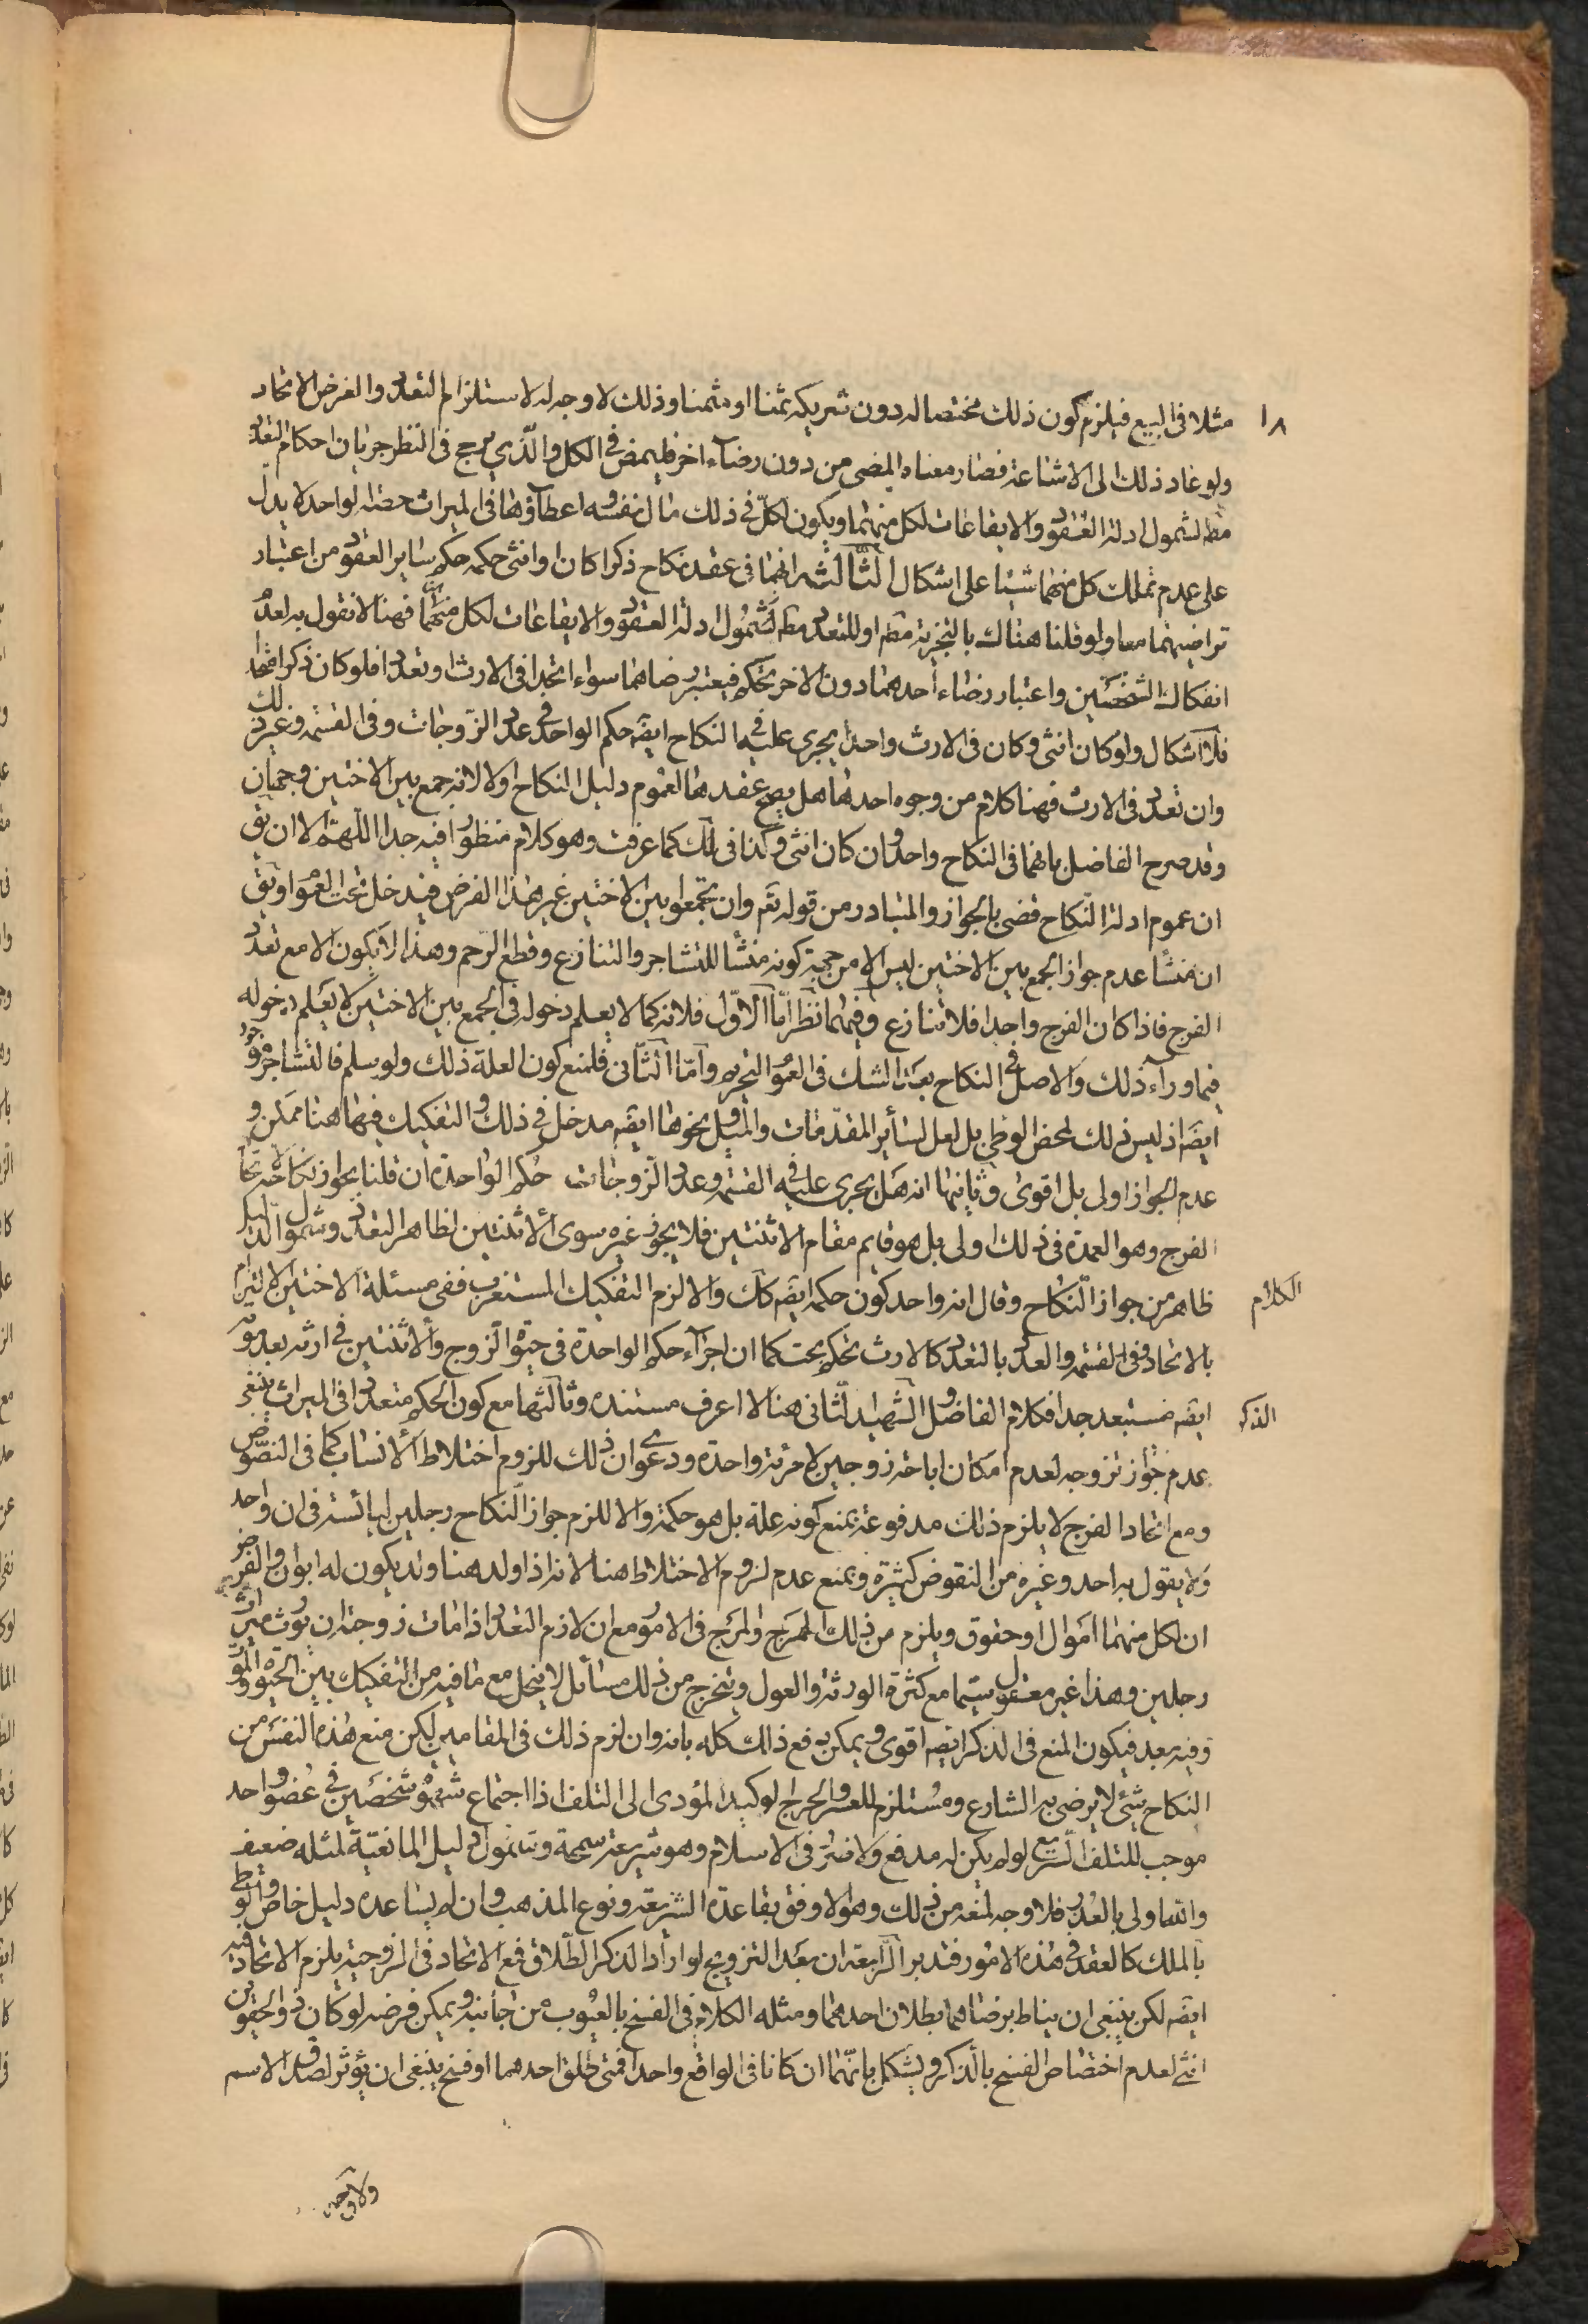 ١٨
مثلا فى البيع فيلزم كون ذلك مختصا له دون شريكه ثمنا او مثمنا وذلك لا وجه له لاستلزام التعدد والفرض الاتحاد
ولو عاد ذلك الى الاشاعة فصار معناه المضى من دون رضاء اخر فليمض فى الكل والّذي يرجح فى النظر جريان احكام التعدد
مطه لشمول ادلة العقود والايقاعات لكل منهما ويكون لكلّ فى ذلك مال نفسه واعطاؤها فى الميراث حصة لواحد لا يدل
على عدم تملك كل منهما شيئا على اشكال الثّالثة انهما فى عقد نكاح ذكرا كان او انثى حكمه حكم ساير العقود من اعتبار
تراضيهما معا ولو قلنا هناك بالتجزية مطه او للتعدد مطه لشمول ادلة العقود والايقاعات لكل منهما فهنا لا نقول به لعدم
انفكاك الشخصين واعتبار رضاء احدهما دون الاخر تحكم فيعتبر رضاهما سواء اتحدا فى الارث او تعددا فلو كان ذكرا متحدا
فلا اشكال ولو كان انثى وكان فى الارث واحدا يجرى عليه فى النكاح ايضه حكم الواحد فى عدد الزّوجات وفى القسمة وغير ذلك
وان تعدد فى الارث فهنا كلام من وجوه احدها هل يصح عقدها لعموم دليل النكاح او لا لانه جمع بين الاختين وجهان
وقد صرح الفاضل بانهما فى النكاح واحد وان كان انثى وكذا فى لك كما عرفت وهو كلام منظور فيه جدا اللّهم الا ان يق
ان عموم ادلة النّكاح قضى بالجواز والمتبادر من قوله تعه وان تجمعوا بين الاختين غير هذا الفرض فيدخل تحت العموم او يق
ان منشأ عدم جواز الجمع بين الاختين ليس الا من جهة كونه منشأ للتشاجر والتنازع وقطع الرّحم وهذا لا يكون الا مع تعدد
الفرج فاذا كان الفرج واحدا فلا تنازع وفيهما نظر امّا الاوّل فلانه كما لا يعلم دخوله فى الجمع بين الاختين لا يعلم دخوله
فيما وراء ذلك والاصل فى النكاح بعد الشك فى العموم التحريم وامّا الثّانى فلمنع كون العلة ذلك ولو سلم فالتشاجر موجود
ايضه اذ ليس ذلك لمحض الوطى بل لعل لسائر المقدّمات والميل ونحوها ايضه مدخل فى ذلك والتفكيك فيها هنا ممكن و
عدم الجواز اولى بل اقوى وثانيها انه هل يجرى عليه فى القسمة وعدد الزّوجات حكم الواحدة ان قلنا بجواز نكاحه لاتحاد
الفرج وهو العمدة فى ذلك اولى بل هو قايم مقام الاثنتين فلا يجوز غيره سوى الاثنتين لظاهر التعدد وشمول الدّليل
ظاهر من جواز النّكاح وقال انه واحد كون حكمه ايضه كك والا لزم التفكيك المستغرب ففى مسئلة الاختين الالتزام الكلام
بالاتحاد وفى القسمة والعدد بالتعدد كالارث تحكم بحت كما ان اجراء حكم الواحدة فى حيوة الزّوج والاثنتين فى ارثه بعد موته
ايضه مستبعد جدا فكلام الفاضل والشّهيد الثّانى هنا لا اعرف مستنده وثالثها مع كون الحكم متعددا فى الميراث ينبغى الذكر
عدم جواز تزوجه لعدم امكان اباحة زوجين لامرئة واحدة ودعوى ان ذلك للزوم اختلاط الانساب كما فى النصّوص
ومع اتحاد الفرج لا يلزم ذلك مدفوعة بمنع كونه علة بل هو حكمة والا للزم جواز النّكاح رجلين ليائسة فى ان واحد
ولا يقول به احد وغيره من النقوض كثيرة ونمنع عدم لزوم الاختلاط هنا لانه اذا ولد هنا ولد يكون له ابوان والفرض
ان لكل منهما اموال او حقوق ويلزم من ذلك الهرج والمرج فى الامور مع ان لازم التعدد اذا مات زوجته ان يورث ميراث
رجلين وهذا غير معقول سيّما مع كثرة الورثة والعول ويخرج من ذلك مسائل لا ينحل مع ما فيه من التفكيك بين الحيوة والموت
وفيه بعد فيكون المنع فى الذكر ايضه اقوى ويمكن دفع ذلك كله بانه وان لزم ذلك فى المقامين لكن منع هذه النفس من
النكاح شئ لا يرضى به الشارع ومستلزم للعسر والحرج الوكيد المؤدى الى التلف اذ اجتماع شهوة شخصين فى عضو واحد
موجب للتلف السّريع لو لم يكن له مدفع ولا ضرر فى الاسلام وهو شريعة سمحة وشمول دليل المانعيّة لمثله ضعيف
والله اولى بالعذر فلا وجه لمنعه من ذلك وهو الاوفق بقاعدة الشريعة ونوع المذهب وان لم يساعده دليل خاص والوطى
بالملك كالعقد فى هذه الامور فتدبر الرّابعة ان بعد التزويج لو اراد الذكر الطّلاق فمع الاتحاد فى الزوجية يلزم الاتحاد فيه
ايضه لكن ينبغى ان يناط برضاهما بطلان احدهما ومثله الكلام فى الفسخ بالعيوب من جانبه ويمكن فرضه لو كان ذو الحقوين
انثى لعدم اختصاص الفسخ بالذكر ويشكل بانّهما ان كانا فى الواقع واحدا فمتى طلق احدهما او فسخ ينبغى ان يؤثر لصدق الاسم
ولا وجه